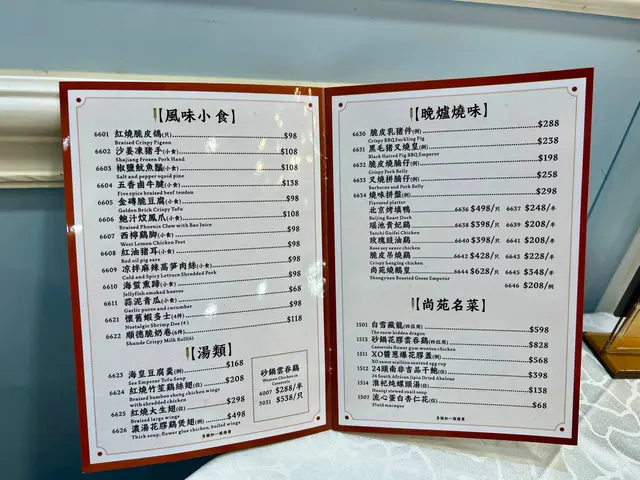 【風味小食】
6601 紅燒脆皮鴿(只) $98
Braised Crispy Pigeon
6602 沙姜凍豬手(小食) $108
Shajiang Frozen Pork Hand
6603 椒鹽魷魚鬚(小食) $108
Salt and pepper squid pine
6604 五香鹵牛腱(小食) $138
Five spice braised beef tendon
6605 金磚脆豆腐(小食) $98
Golden Brick Crispy Tofu
6606 鮑汁炆鳳爪(小食) $108
Braised Phoenix Claw with Bao Juice
6607 西檸雞脚(小食) $98
West Lemon Chicken Feet
6608 紅油豬耳(小食) $98
Red oil pig ears
6609 凉拌麻辣萵笋肉絲(小食) $98
Cold and Spicy Lettuce Shredded Pork
6610 海蜇熏蹄(小食) $68
Jellyfish smoked hooves
6611 蒜泥青瓜(小食) $98
Garlic puree and cucumber
6621 懷舊蝦多士(4件) $98
Nostalgic Shrimp Dos (4)
6622 順德脆奶卷(4件) $118
Shunde Crispy Milk Roll(6)
【湯類】
6623 海皇豆腐羹(例) $168
Sea Emperor Tofu Soup
6624 紅燒竹笙雞絲翅(位) $208
Braised bamboo sheng chicken wings
with shredded chicken
6625 紅燒大生翅(位) $298
Braised large wings
6626 濃湯花膠雞煲翅(例) $498
Thick soup, flower glue chicken, boiled wings
砂鍋雲吞鷄
Wonton Chicken in
Casserole
4007 $288/半
5031 $538/只
【晚爐燒味】
6630 脆皮乳豬件(例) $288
Crispy BBQ Suckling Pig
6631 黑毛豬叉燒皇(例) $238
Black Haired Pig BBQ Emperor
6632 脆皮燒腩仔(例) $198
Crispy Pork Belly
6633 叉燒拼腩仔(例) $258
Barbecue and Pork Belly
6634 燒味拼盤(例) $298
Flavored platter
北京烤填鴨 6636 $498/只 6637 $248/半
Beijing Roast Duck
瑤池貴妃鷄 6638 $398/只 6639 $208/半
Yaochi Guifei Chicken
玫瑰豉油鷄 6640 $398/只 6641 $208/半
Rose soy sauce chicken
脆皮吊燒鷄 6642 $428/只 6643 $228/半
Crispy hanging chicken
尚苑燒鵝皇 6644 $628/只 6645 $348/半
Shangyuan Roasted Goose Emperor
6646 $208/例
【尚苑名菜】
1501 白雪藏龍(四位用) $598
The snow hidden dragon
1513 砂鍋花膠雲吞鷄(四位用) $828
Casserole flower gum wonton chicken
1511 XO醬葱爆花膠蓋(例) $568
XO sauce scallion sauteed egg cap
1512 24頭南非吉品干鮑(位) $398
24 South African Jipin Dried Abalone
1514 淮杞炖螺頭湯(位) $138
Huaiqi stewed snail soup
1507 流心蛋白杏仁花(位) $68
Fluid macaque